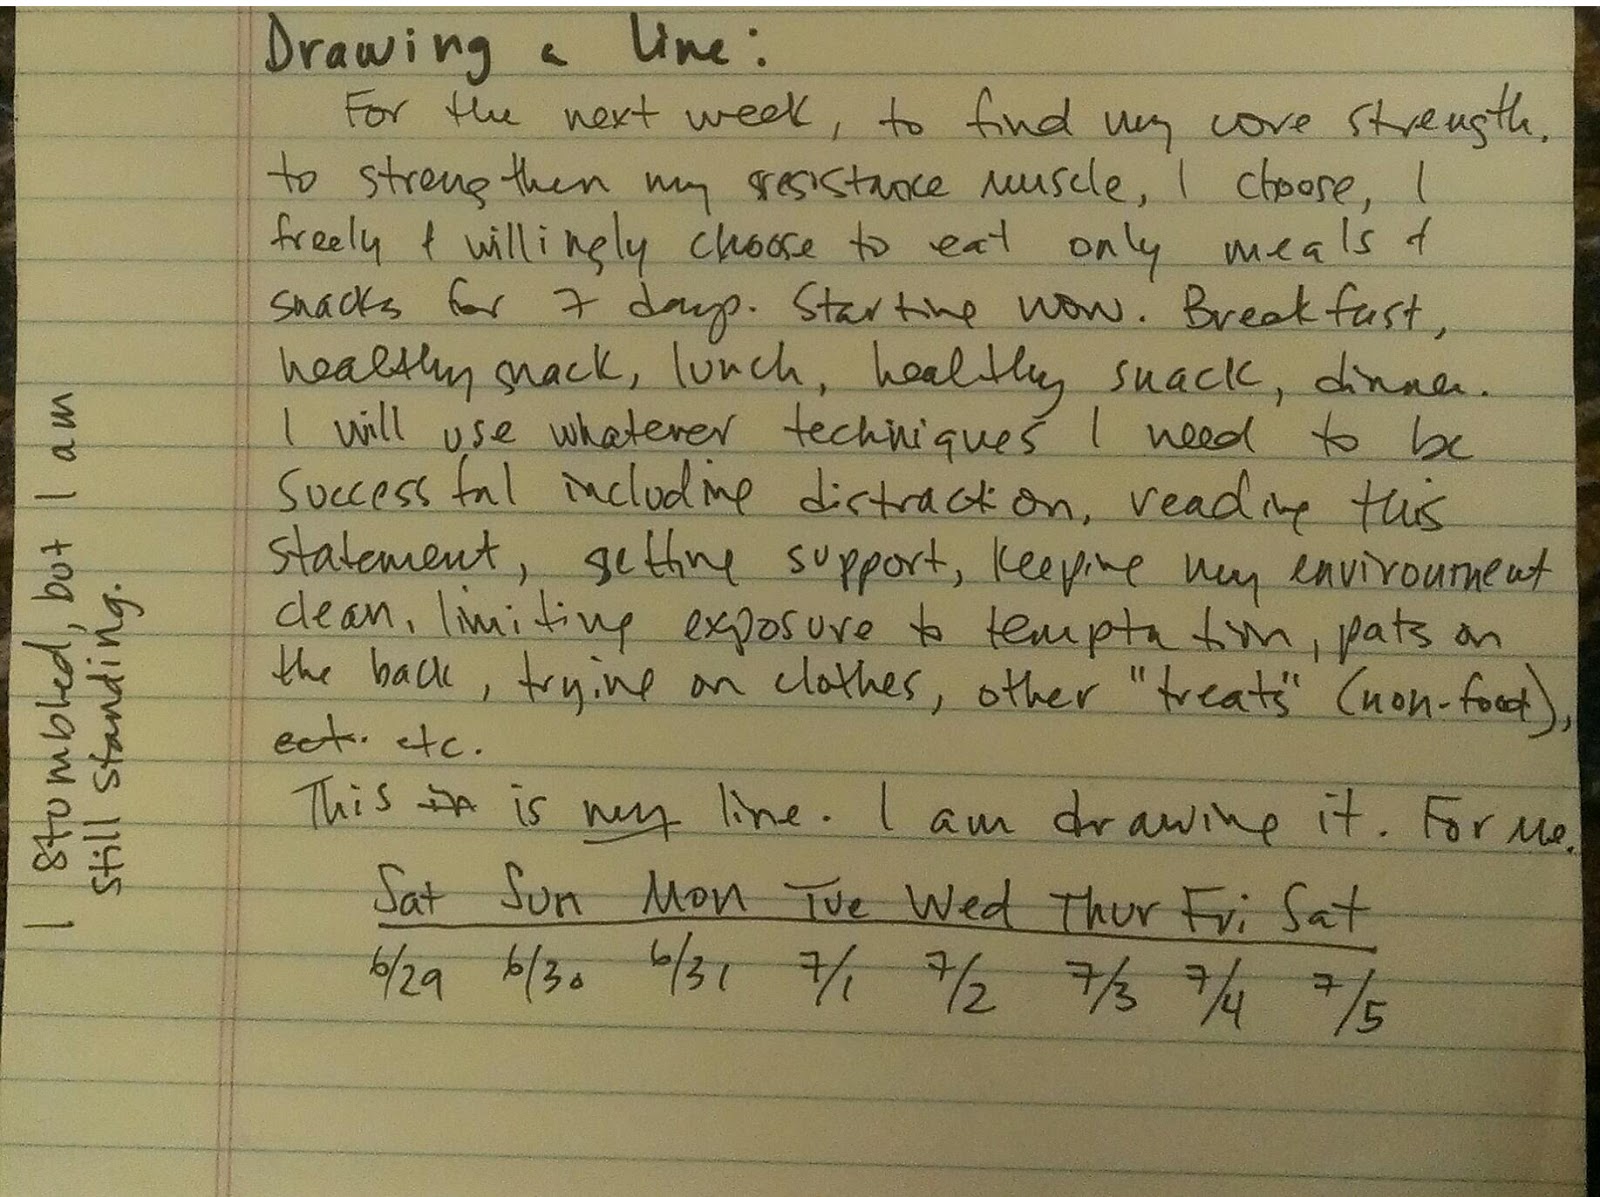 Drawing a line:
For the next week, to find my core strength,
to strengthen my resistance muscle, I choose, I
freely & willingly choose to eat only meals &
snacks for 7 days. Starting now. Breakfast,
healthy snack, lunch, healthy snack, dinner.
I will use whatever techniques I need to be
successful including distraction, reading this
statement, getting support, keeping my environment
clean, limiting exposure to temptation, pats on
the back, trying on clothes, other "treats" (non-food),
ect. etc.
This in is my line. I am drawing it. For me.
Sat Sun Mon Tue Wed Thur Fri Sat
6/29 6/30 6/31 7/1 7/2 7/3 7/4 7/5
I stumbled, but I am
still standing.